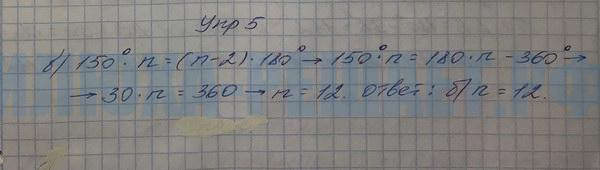 Упр 5
б) 150° · n = (n-2) · 180° → 150° · n = 180 · n - 360° →
→ 30 · n = 360 → n = 12. Ответ: б) n = 12.